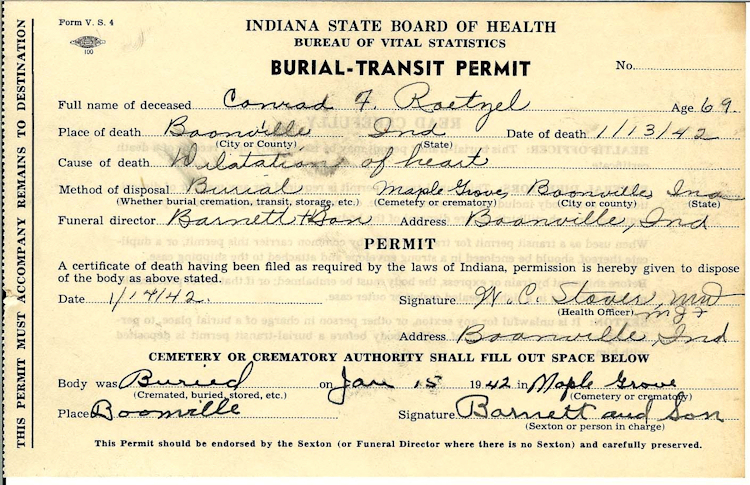 Form V. S. 4
100
INDIANA STATE BOARD OF HEALTH
BUREAU OF VITAL STATISTICS
BURIAL-TRANSIT PERMIT
No.
Full name of deceased Conrad F. Roetzel Age 69
Place of death Boonville Ind Date of death 1/13/42
(City or County) (State)
Cause of death Dilatation of heart
Method of disposal Burial Maple Grove Boonville Ind
(Whether burial cremation, transit, storage, etc.) (Cemetery or crematory) (City or county) (State)
Funeral director Barnett + Son Address Boonville, Ind
PERMIT
A certificate of death having been filed as required by the laws of Indiana, permission is hereby given to dispose
of the body as above stated.
Date 1/14/42. Signature W. C. Stover, MD
(Health Officer)
Address Boonville, Ind
CEMETERY OR CREMATORY AUTHORITY SHALL FILL OUT SPACE BELOW
Body was Buried on Jan 15 1942 in Maple Grove
(Cremated, buried, stored, etc.) (Cemetery or crematory)
Place Boonville Signature Barnett and Son
(Sexton or person in charge)
This Permit should be endorsed by the Sexton (or Funeral Director where there is no Sexton) and carefully preserved.
THIS PERMIT MUST ACCOMPANY REMAINS TO DESTINATION